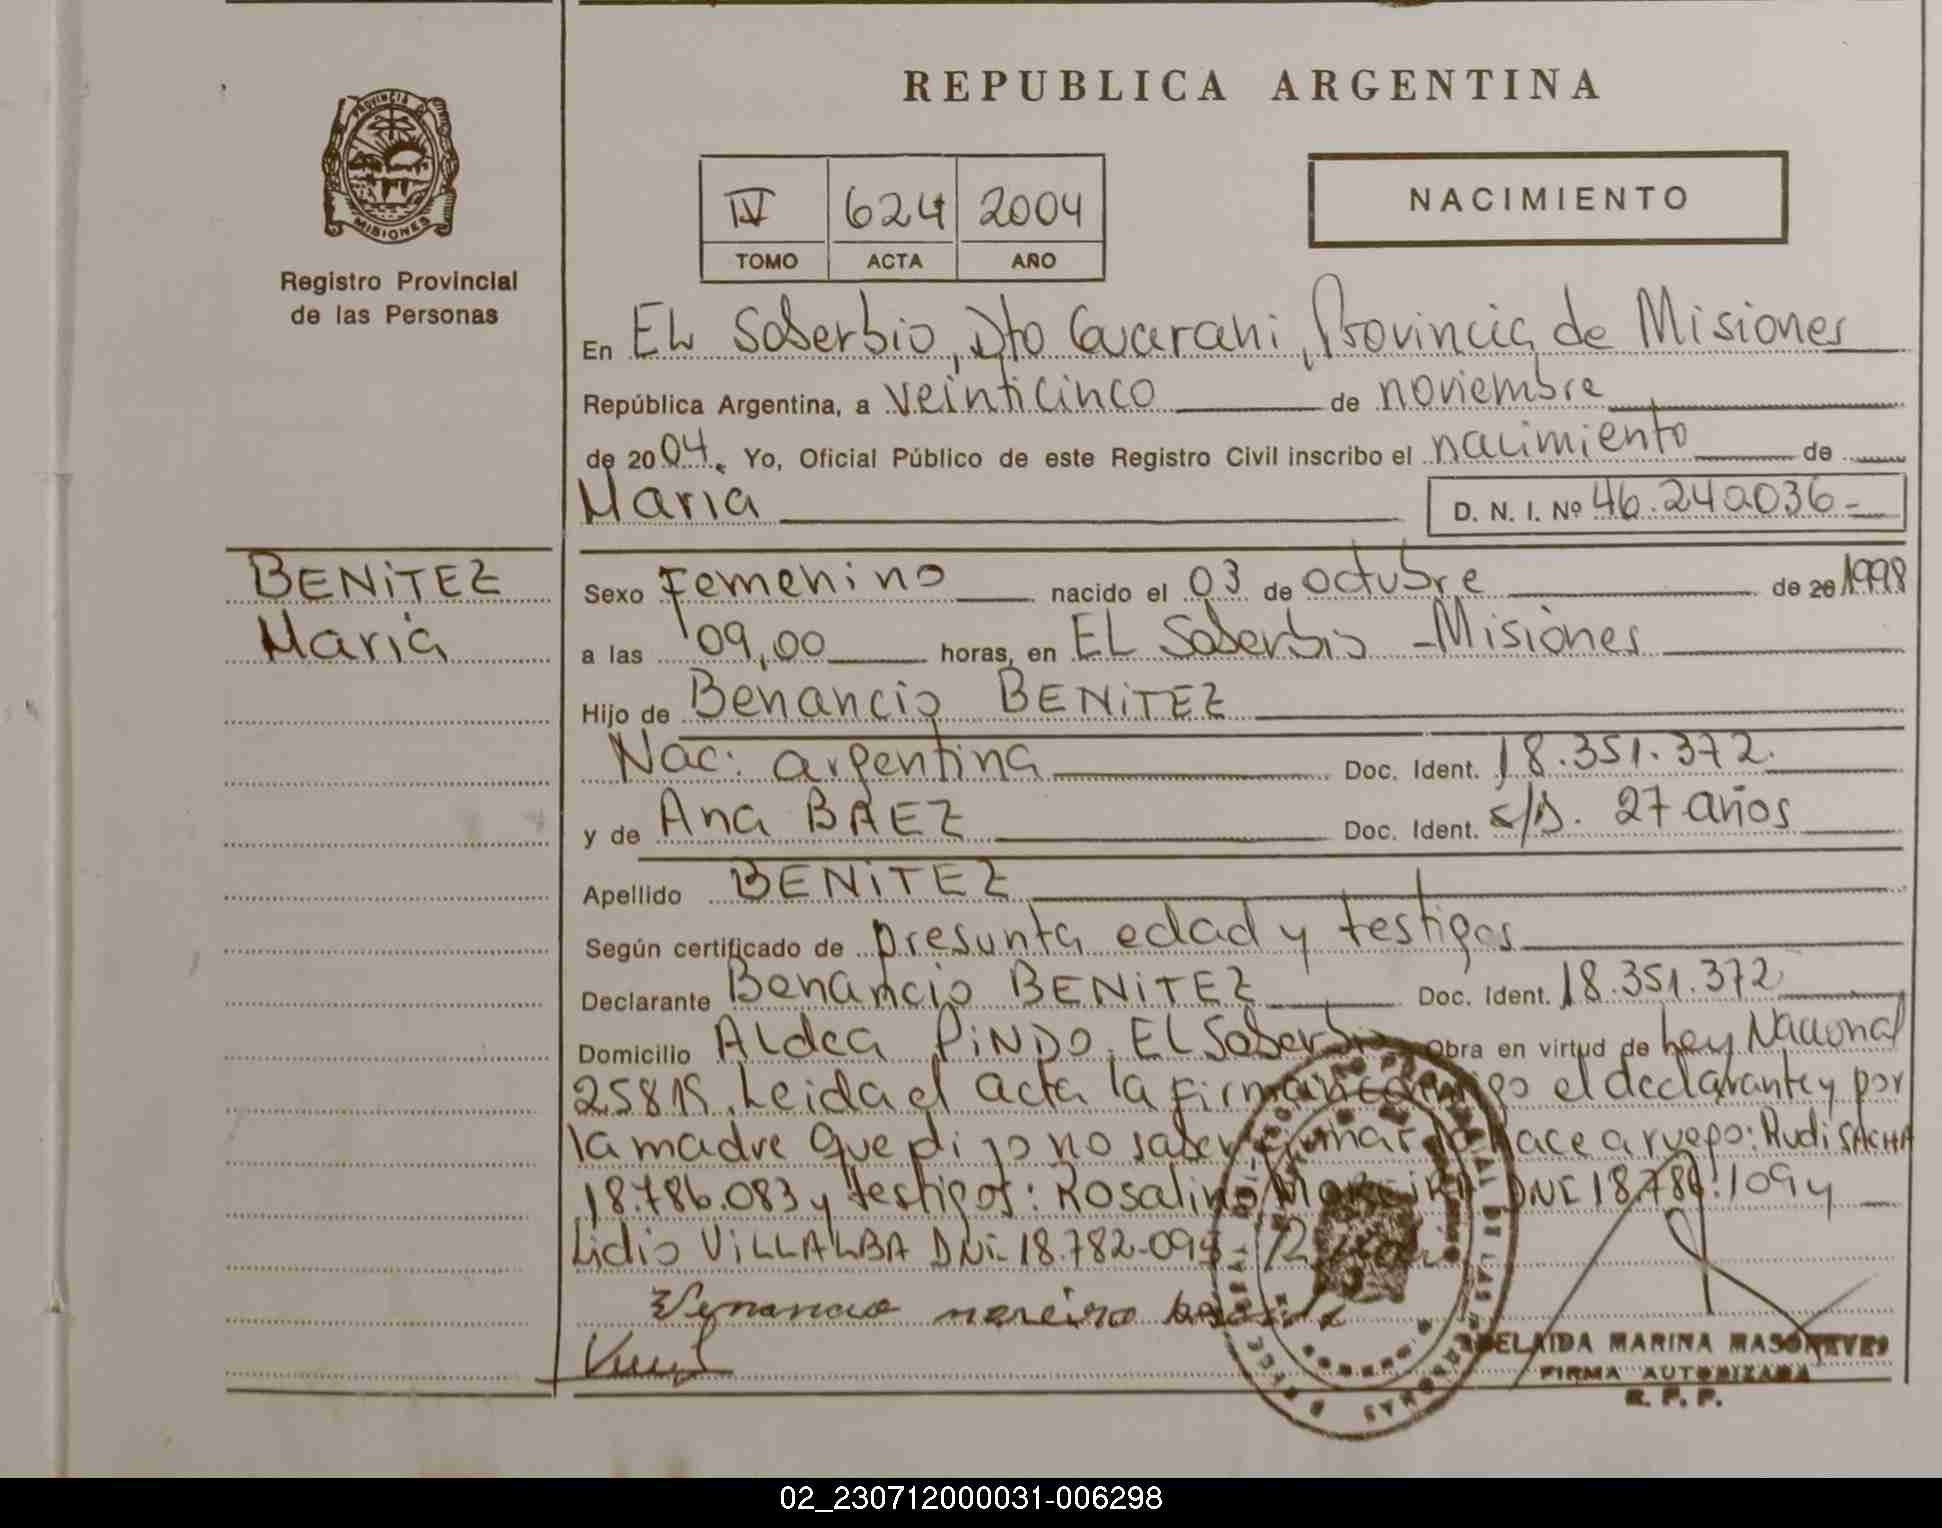 REPUBLICA ARGENTINA
PROVINCIA DE
MISIONES
Registro Provincial
de las Personas
IV 624 2004
TOMO ACTA AÑO
NACIMIENTO
En EL Soberbio, Dto Guarani, Provincia de Misiones
República Argentina, a veinticinco de noviembre
de 2004. Yo, Oficial Público de este Registro Civil inscribo el nacimiento de
Maria D. N. I. Nº 46.240.036-
BENiTEZ
Maria
Sexo Femenino nacido el 03 de octubre de 20 1998
a las 09,00 horas, en EL Soberbio - Misiones
Hijo de Benancio BENiTEZ
Nac: argentina Doc. Ident. 18.351.372.
y de Ana BAEZ Doc. Ident. s/D. 27 años
Apellido BENiTEZ
Según certificado de presunta edad y testigos
Declarante Benancio BENiTEZ Doc. Ident. 18.351.372
Domicilio ALdea PiNDO, EL Soberbio Obra en virtud de Ley Nacional
25819. Leida el acta la firman conmigo el declarante y por
la madre que dijo no saber firmar lo hace a ruego: Rudi SACHA
18.786.083 y testigos: Rosalino DNI 18.78
Lidio ViLLALBA DNi- 18.782-09
Venancio
ADELAIDA MARINA MASO
FIRMA AUTORIZADA
R. P. P.
02_230712000031-006298